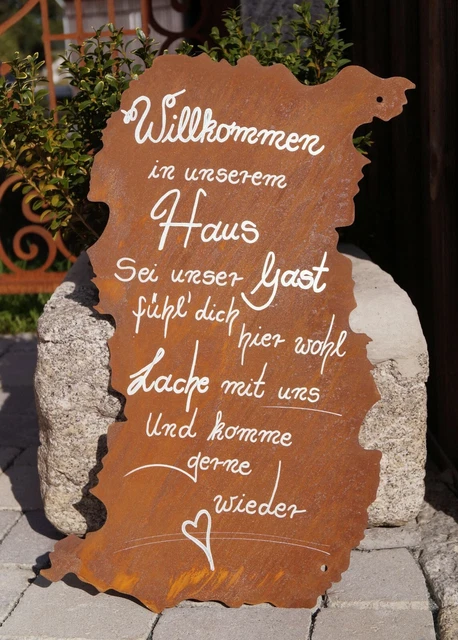 Willkommen
in unserem
Haus
Sei unser Gast
fühl' dich
hier wohl
Lache mit uns
Und komme
gerne
wieder